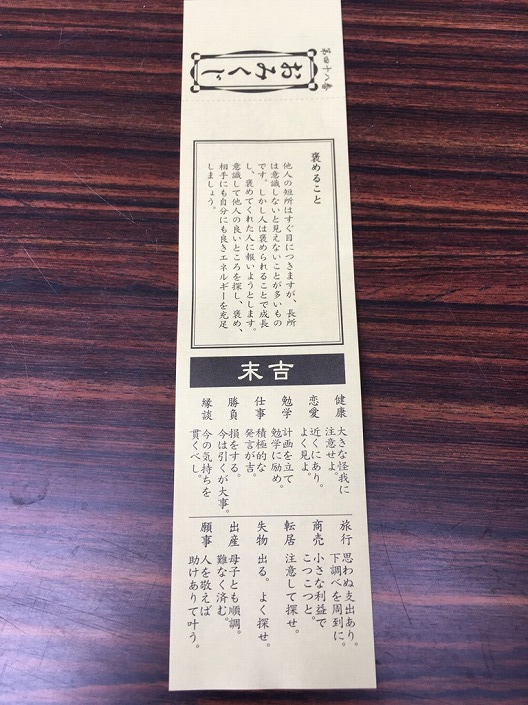 第四十八番
おみくじ
褒めること
他人の短所はすぐ目につきますが、長所
は意識しないと見えないことが多いもの
です。しかし人は褒められることで成長
し、褒めてくれた人に報いようとします。
意識して他人の良いところを探し、褒め、
相手にも自分にも良きエネルギーを充足
しましょう。
末吉
健康
大きな怪我に
注意せよ。
恋愛
近くにあり。
よく見よ。
勉学
計画を立て
勉学に励め。
仕事
積極的な
発言が吉。
勝負
損をする。
今は引くが大事。
縁談
今の気持ちを
貫くべし。
旅行
思わぬ支出あり。
下調べを周到に。
商売
小さな利益で
こつこつと。
転居
注意して探せ。
失物
出る。よく探せ。
出産
母子とも順調。
難なく済む。
願事
人を敬えば
助けありて叶う。